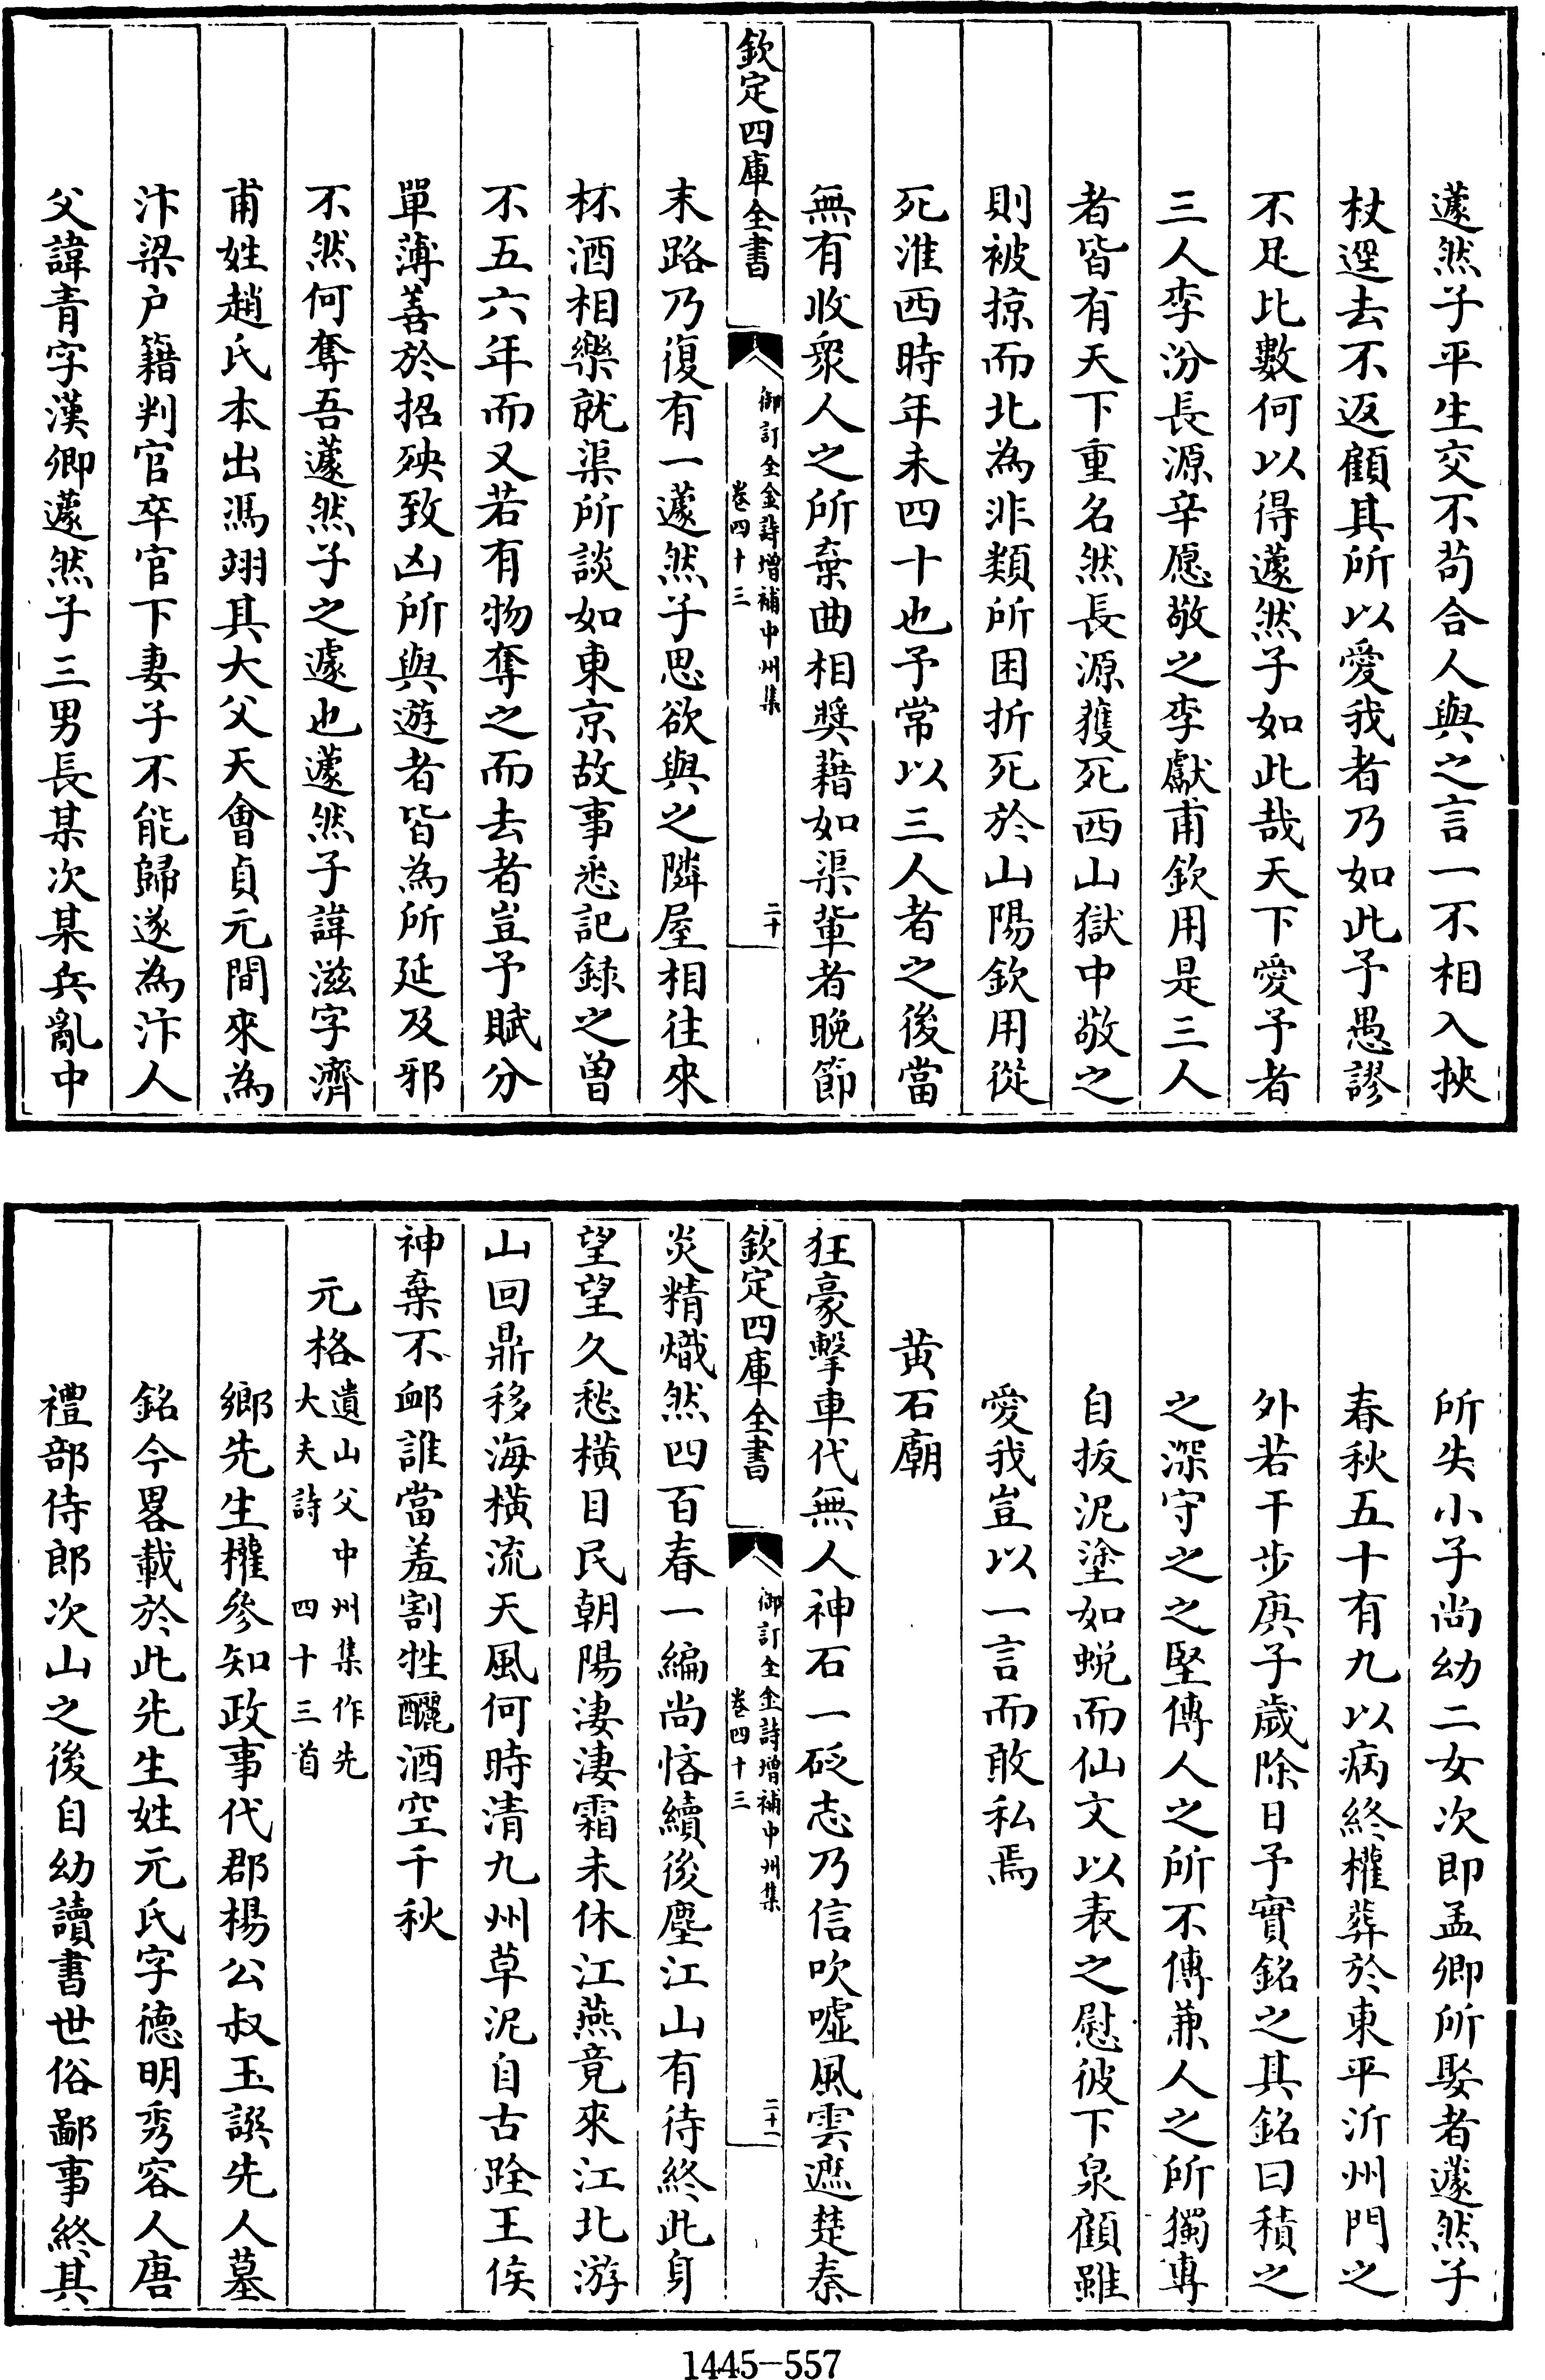 蘧然子平生交不苟合人與之言一不相入挾
杖逕去不返顧其所以愛我者乃如此予愚謬
不足比數何以得蘧然子如此哉天下愛予者
三人李汾長源辛愿敬之李獻甫欽用是三人
者皆有天下重名然長源獲死西山獄中敬之
則被掠而北為非類所困折死於山陽欽用從
死淮西時年未四十也予常以三人者之後當
無有收衆人之所棄曲相奬藉如渠輩者晚節
欽定四庫全書
御訂全金詩增補中州集
卷四十三
二十
末路乃復有一蘧然子思欲與之隣屋相往來
杯酒相樂就渠所談如東京故事悉記録之曽
不五六年而又若有物奪之而去者豈予賦分
單薄善於招殃致凶所與遊者皆為所延及邪
不然何奪吾蘧然子之遽也蘧然子諱滋字濟
甫姓趙氏本出馮翊其大父天會貞元間來為
汴梁户籍判官卒官下妻子不能歸遂為汴人
父諱青字漢卿蘧然子三男長某次某兵亂中
所失小子尚幼二女次即孟卿所娶者蘧然子
春秋五十有九以病終權葬於東平沂州門之
外若干步庚子歲除日予實銘之其銘曰積之
之深守之之堅傳人之所不傳兼人之所獨専
自拔泥塗如蜕而仙文以表之慰彼下泉顧雖
愛我豈以一言而敢私焉
黄石廟
狂豪擊車代無人神石一砭志乃信吹噓風雲遮楚秦
欽定四庫全書
御訂全金詩增補中州集
卷四十三
二十一
炎精熾然四百春一編尚悋續後塵江山有待終此身
望望久愁横目民朝陽淒淒霜未休江燕竟來江北游
山回鼎移海横流天風何時清九州草泥自古跧王侯
神棄不䘏誰當羞割牲釃酒空千秋
元格遺山父中州集作先
大夫詩 四十三首
鄉先生櫂參知政事代郡楊公叔玉譔先人墓
銘今畧載於此先生姓元氏字德明秀容人唐
禮部侍郎次山之後自幼讀書世俗鄙事終其
1445-557